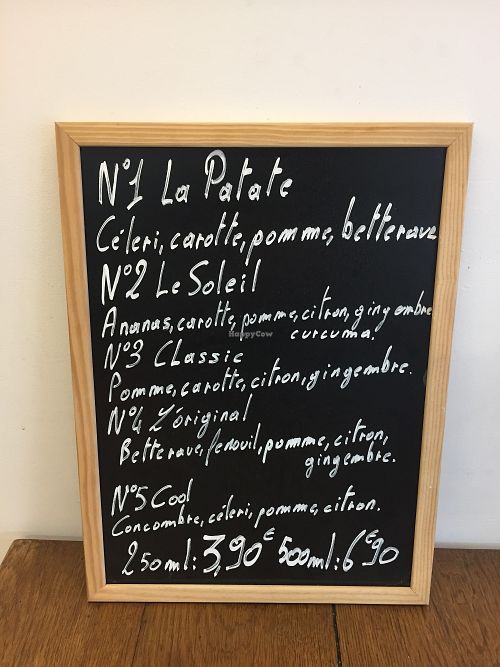 N°1 La Patate
Céleri, carotte, pomme, betterave
N°2 Le Soleil
Ananas, carotte, pomme, citron, gingembre
curcuma.
HappyCow
N°3 CLassic
Pomme, carotte, citron, gingembre.
N°4 L'original
Betterave, fenouil, pomme, citron,
gingembre.
N°5 Cool
Concombre, céleri, pomme, citron.
250ml: 3,90€ 500ml: 6€90